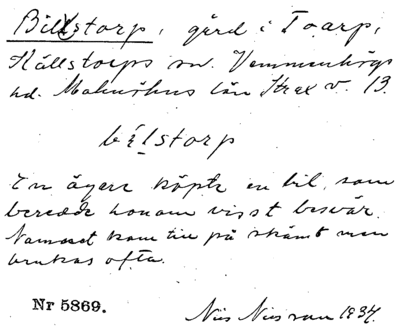 Bilstorp, gård i Toarp,
Källstorps sn. Vemmenhögs
hd. Malmöhus län Strax v. 13.
bílstorp
En ägare köpte en bil, som
beredde honom visst besvär.
Namnet kom till på skämt men
brukas ofta.
Nr 5869.
Nils Nilsson 1934.